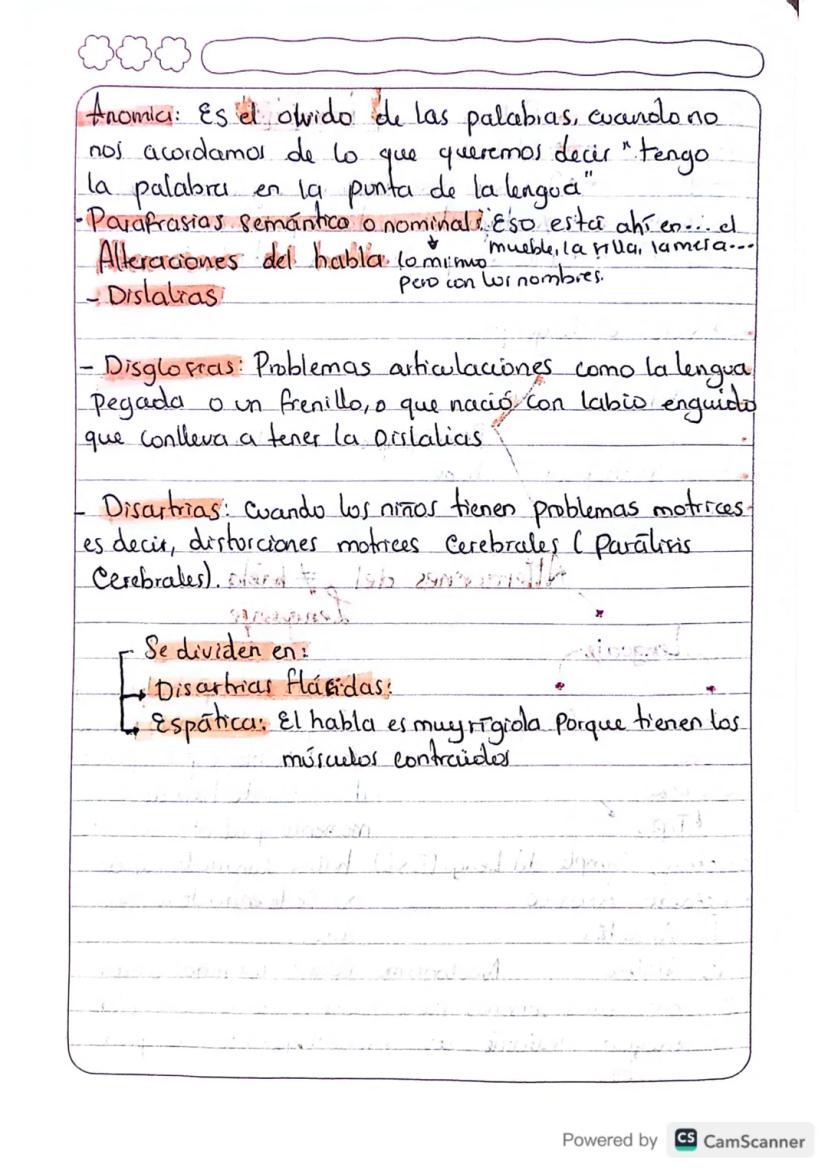 Anomia: Es el olvido de las palabras, cuando no
nos acordamos de lo que queremos decir "tengo
la palabra en la punta de la lengua"
-Parafrasias semántica o nominal: Eso está ahí en... el
mueble, la silla, la mesa...
Alteraciones del habla lo mismo
pero con los nombres.
- Dislalias
- Disglosias: Problemas articulaciones como la lengua
pegada o un frenillo, o que nació con labio enguido
que conlleva a tener la Dislalias
- Disartrias: Cuando los niños tienen problemas motrices
es decir, distorciones motrices Cerebrales (Parálisis
Cerebrales).
Se dividen en:
Disartrias flácidas:
Espática: El habla es muy rígida porque tienen los
músculos contraídos
Powered by CS CamScanner